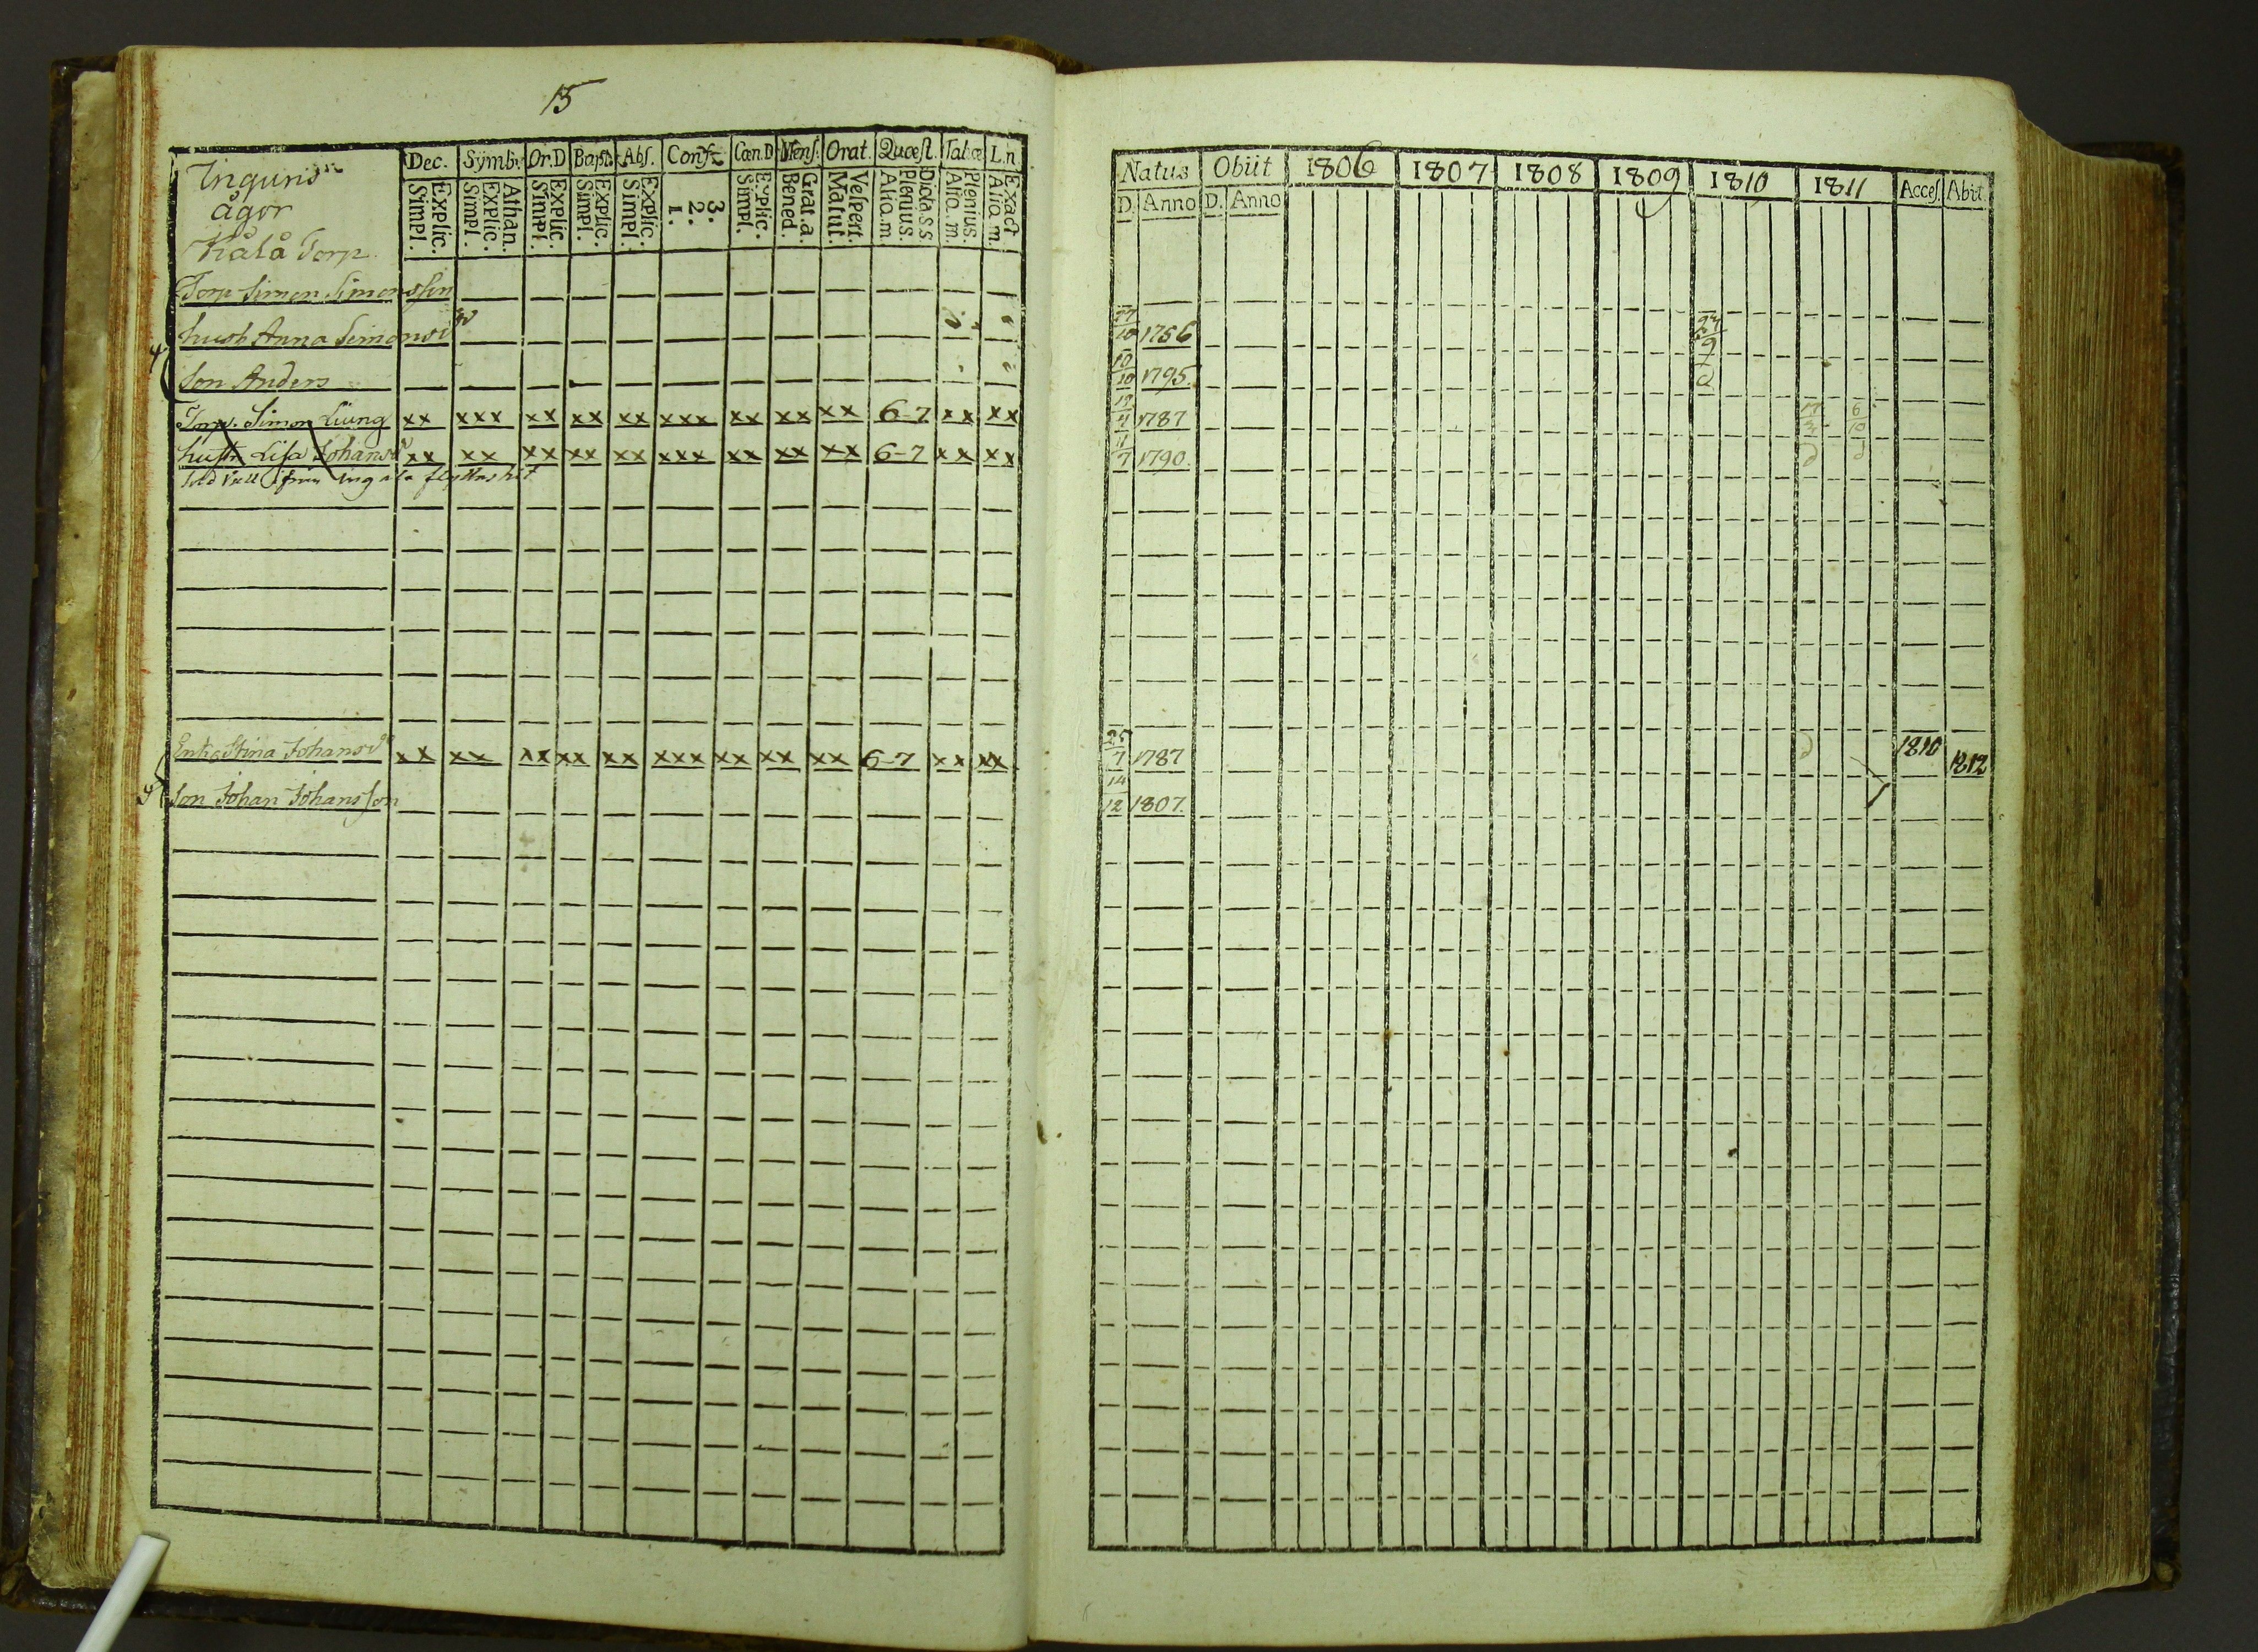 15
Dec. Symb. Or.D Bapt. Abs. Conf. Cœn.D Mens. Orat. Quæst. Tab.œ L.n
Explic. Simpl. Athan. Explic. Simpl. Explic. Simpl. Explic. Simpl. Explic. Simpl. 3. 2. 1. Explic. Simpl. Grat.a. Bened. Vespert. Matut. Dicta s.s. Plenius. Alia.m. Plenius. Alia.m. Exact Alia m.
ägor
Torp
Torp Simon Simonsson
Hust Anna Simonsdr
Son Anders
Torp. Simon Liung xx xxx xx xx xx xxx xx xx xx 6-7 xx xx
Hustr Lisa Johansdr xx xx xx xx xx xxx xx xx xx 6-7 xx xx
flyttas hit
Enk. Stina Johansdr xx xx xx xx xx xxx xx xx xx 6-7 xx xx
Son Johan Johansson
Natus Obiit 1806 1807 1808 1809 1810 1811 Acces. Abiit
D. Anno D. Anno
27/10 1756
10/10 1795
1787
11/7 1790
25/7 1787 1810 1812
14/12 1807